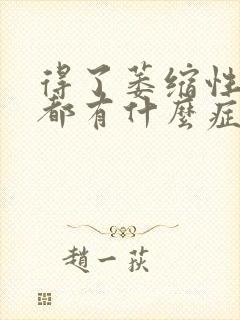 得了萎缩性
都有什麼症
趙一荻